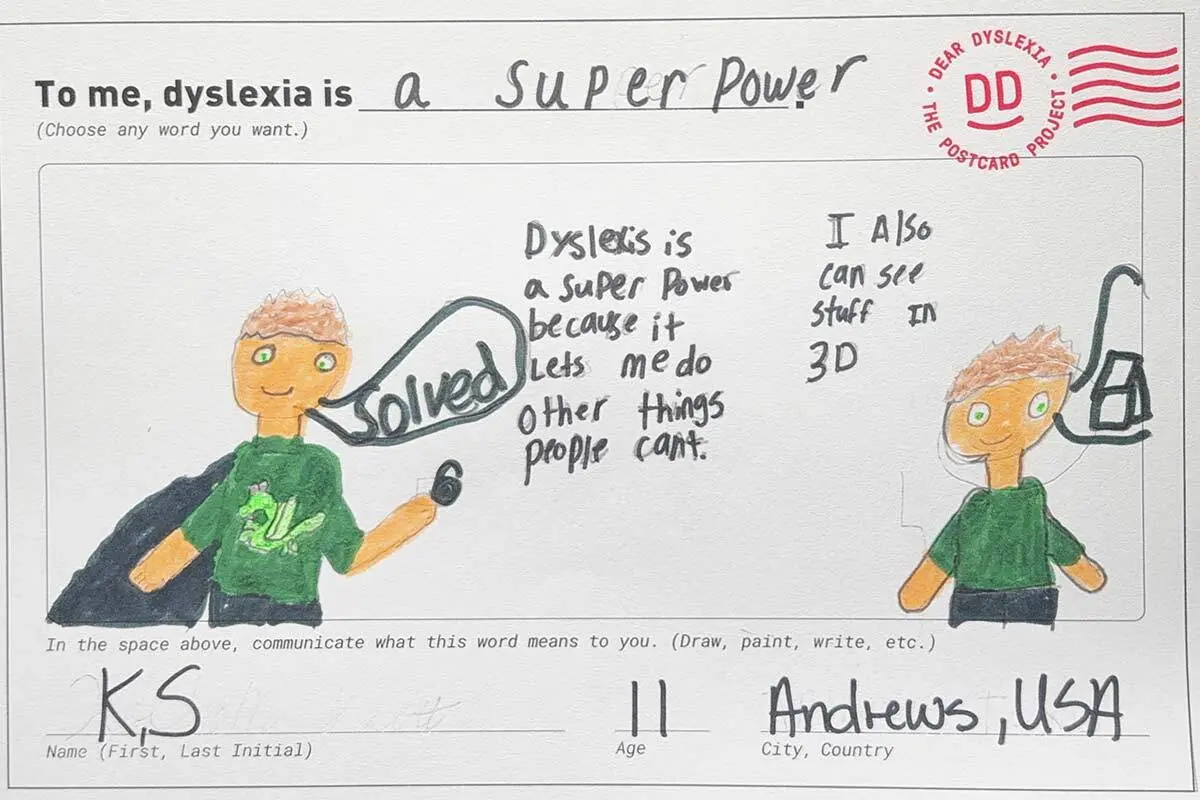 To me, dyslexia is a super power.
(Choose any word you want.)
DEAR DYSLEXIA • THE POSTCARD PROJECT •
DD
Dyslexis is
a super Power
because it
Lets me do
other things
people cant.
I Also
can see
stuff IN
3D
Solved
6
In the space above, communicate what this word means to you. (Draw, paint, write, etc.)
K,S
Name (First, Last Initial)
11
Age
Andrews, USA
City, Country